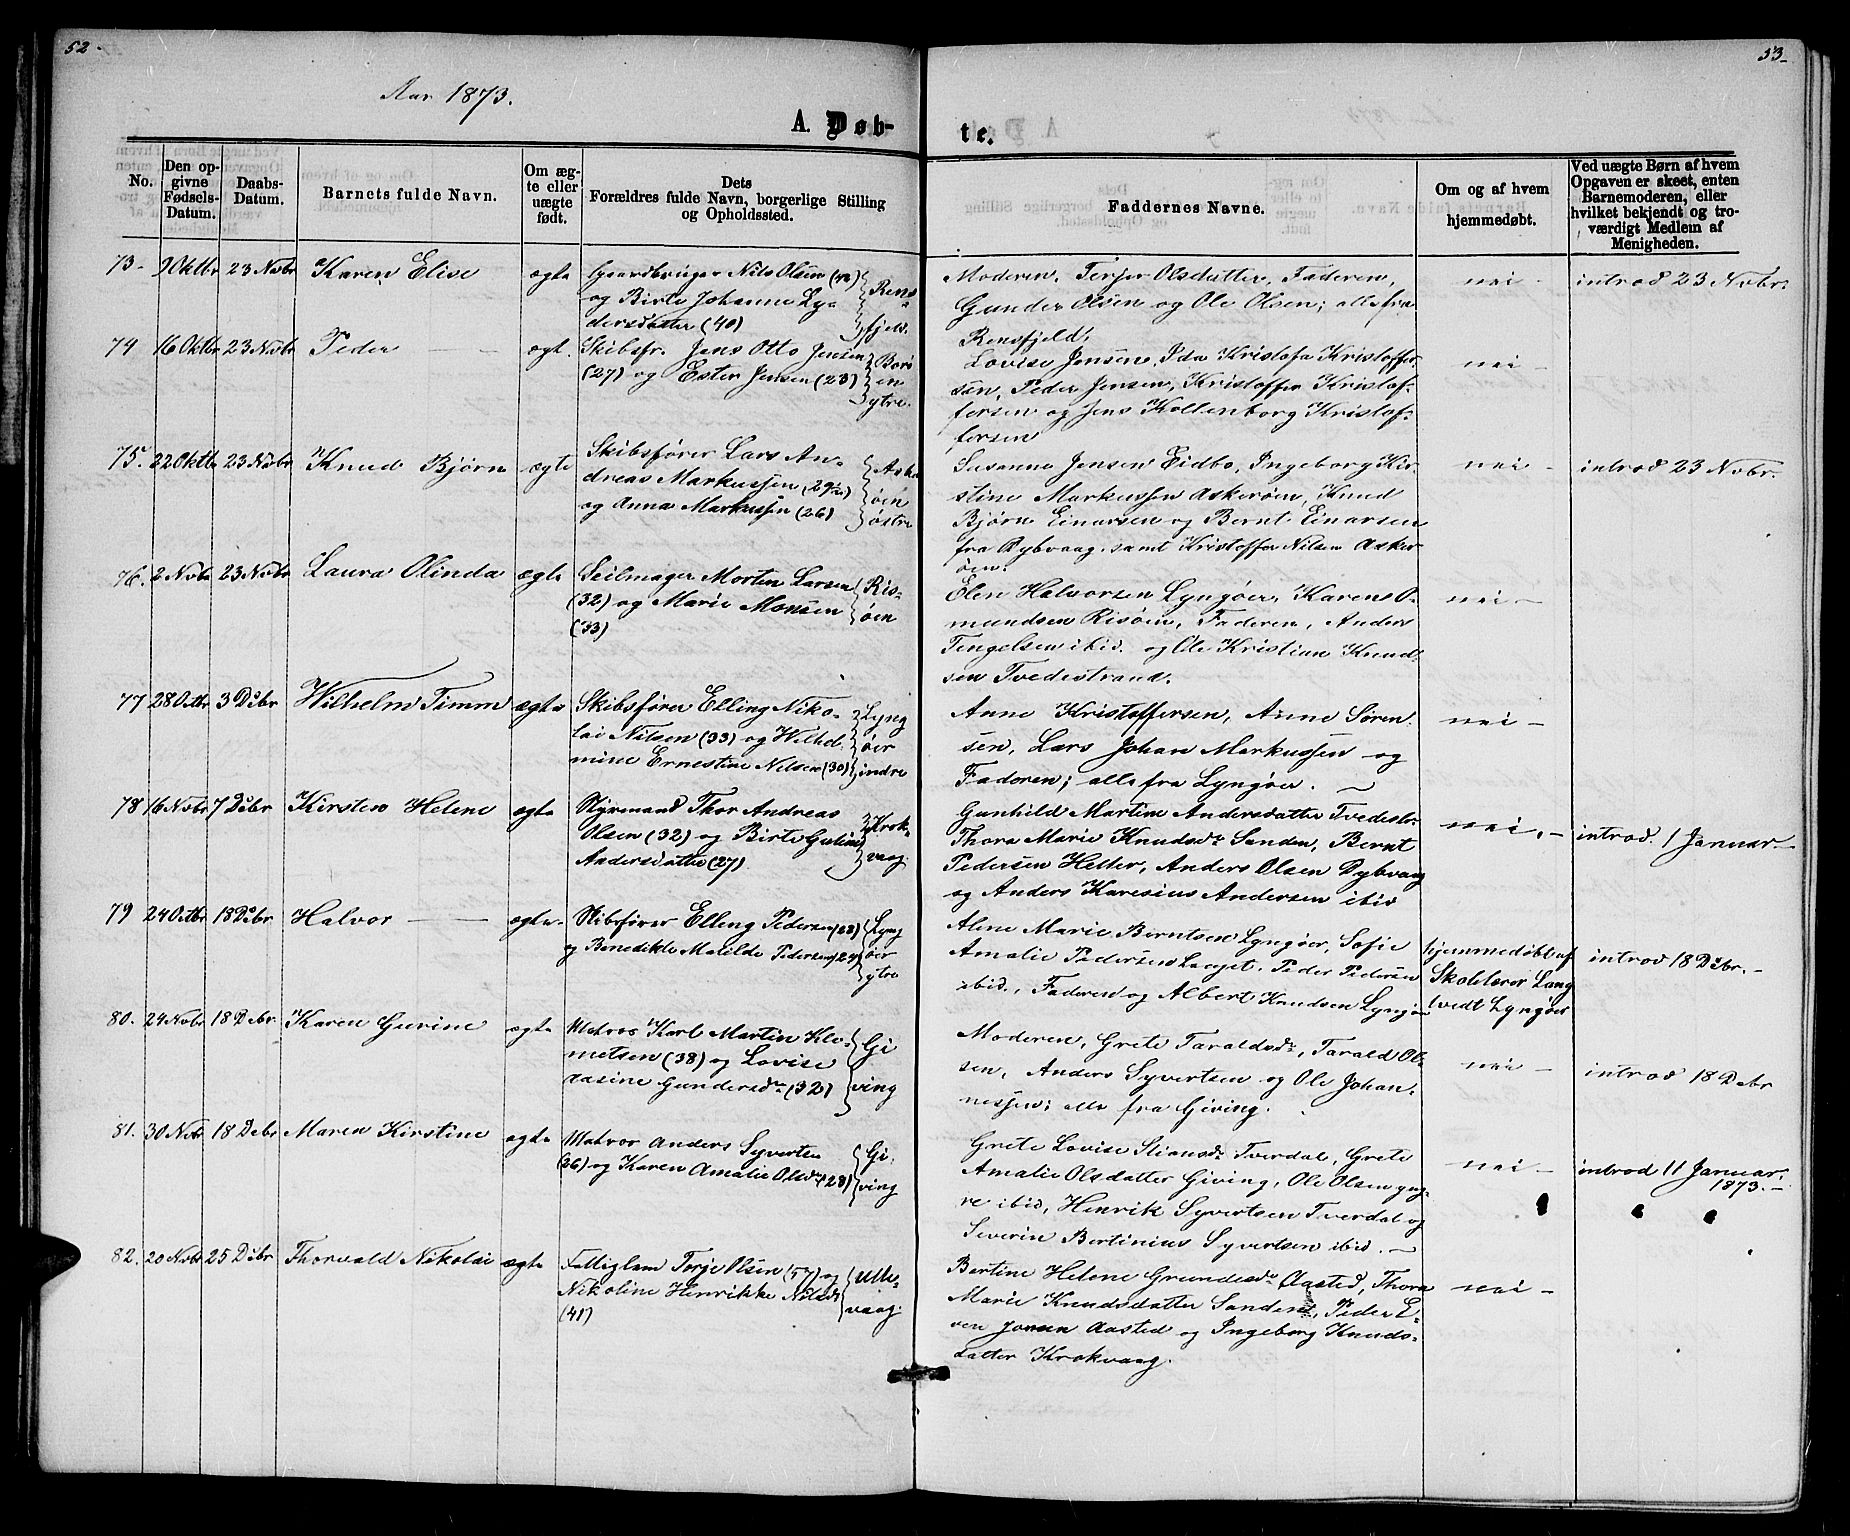 52-
53-
Aar 1873.
A. Døb-
te.
No.
Den op-
givne
Fødsels-
Datum.
Daabs-
Datum.
Barnets fulde Navn.
Om æg-
te eller
uægte
født.
Dets
Forældres fulde Navn, borgerlige Stilling
og Opholdssted.
Faddernes Navne.
Om og af hvem
hjemmedøbt.
Ved uægte Børn af hvem
Opgaven er skeet, enten
Barnemoderen, eller
hvilket bekjendt og tro-
værdigt Medlem af
Menigheden.
73- 9 Oktbr 23 Novbr Karen Elise ægte Gaardbruger Nils Olsen
og Birte Johanne Ly-
dersdatter (40)
Rens-
fjeld.
Moderen, Terjer Olsdatter, Faderen,
Gunder Olsen og Ole Olsen; alle fra
Rensfjeld.
nei - introd 23 Novbr.
74 16 Oktbr 23 Novbr Peder — — ægt. Skibsfr. Jens Otto Jensen
(27) og Ester Jensen (23)
Borø
en
ytre.
Lovise Jensen, Ida Kristofa Kristoffer
sen, Peder Jensen, Kristoffer Kristof-
fersen og Jens Kollenborg Kristof-
fersen
nei -
75. 22 Oktbr 23 Novbr Knud Bjørn ægte Skibsfører Lars An-
dreas Markussen
og Anna Markussen (26)
Aske
øen
østre
Susanne Jensen Eidbo, Ingeborg Kir-
stine Markussen Askerøen, Knud
Bjørn Einarsen og Bernt Einarsen
fra Dybvaag, samt Kristoffer Nilsen Asker-
øen.
nei - introd 23 Novbr.
76. 2 Novbr 23 Novbr Laura Olinda ægte Seilmager Morten Larsen
(32) og Marie Monsen
(33)
Ris-
øen
Elen Halvorsen Lyngøer, Karen O-
mundsen Risøen, Faderen, Anders
Tengelsen ibid. og Ole Kristian Knud-
sen Tvedestrand.
nei -
77 28 Octbr 3 Debr Wilhelm Timm ægte Skibsfører Elling Niko-
lai Nilsen (33) og Wilhel-
mine Ernestine Nilsen (30)
Lyng
øer
indre
Anne Kristoffersen, Anne Søren-
sen, Lars Johan Markussen og
Faderen; alle fra Lyngøer.
nei -
78 16 Novbr 7 Debr Kirsten Helene ægte Styrmand Thor Andreas
Olsen (32) og Birte Guline
Andersdatter (27)
Krok-
vaag.
Gunhild Martine Andersdatter Tvedestr.
Thora Marie Knudsdr Sanden, Bernt
Pedersen Helter, Anders Olsen Dybvaag
og Anders Karesius Andersen ibid
nei. - introd. 1 Januar -
79 24 Octbr 18 Debr Halvor — — ægte. Skibsfører Elling Pedersen (28)
og Benedikte Matilde Pedersen (24)
Lyng
øer
ytre
Alene Marie Berntsen Lyngøer, Sofie
Amalie Pedersen, Peder Pedersen
ibid., Faderen og Albert Knudsen Lyngøer
hjemmedøbt af
Skolelærer Lang
tvedt Lyngøer
introd 18 Debr. -
80. 24 Novbr 18 Debr. Karen Gurine ægte Matros Karl Martin Kle-
metsen (38) og Lovise
Gundersdr (32)
Gi
ving
Moderen, Grete Taraldsdr, Tarald Ol-
sen, Anders Syvertsen og Ole Johan-
nessen; alle fra Giving.
nei - introd 18 Debr
81. 30 Novbr 18 Debr Maren Kirstine ægte Matros Anders Syvertsen
(26) og Karen Amalie Olsdr (28)
Gi-
ving
Grete Lovise Stiansdr Tverdal, Grete
Amalie Olsdatter Giving, Ole Olsen yng-
re ibid, Henrik Syvertsen Tverdal og
Severin Bertinius Syvertsen ibid. -
nei - introd 11 Januar
1873. -
82. 20 Novbr 25 Debr Thorvald Nikolai ægte Fattiglem Torje Olsen (57) og
Nikoline Henrikke Nilsdr
(41)
Ulle-
vaag.
Bertine Helene Grundesdr Aasted, Thora
Marie Knudsdatter Sanden, Peder E-
ven Jonsen Aasted og Ingeborg Knuds-
datter Krokvaag.
nei -